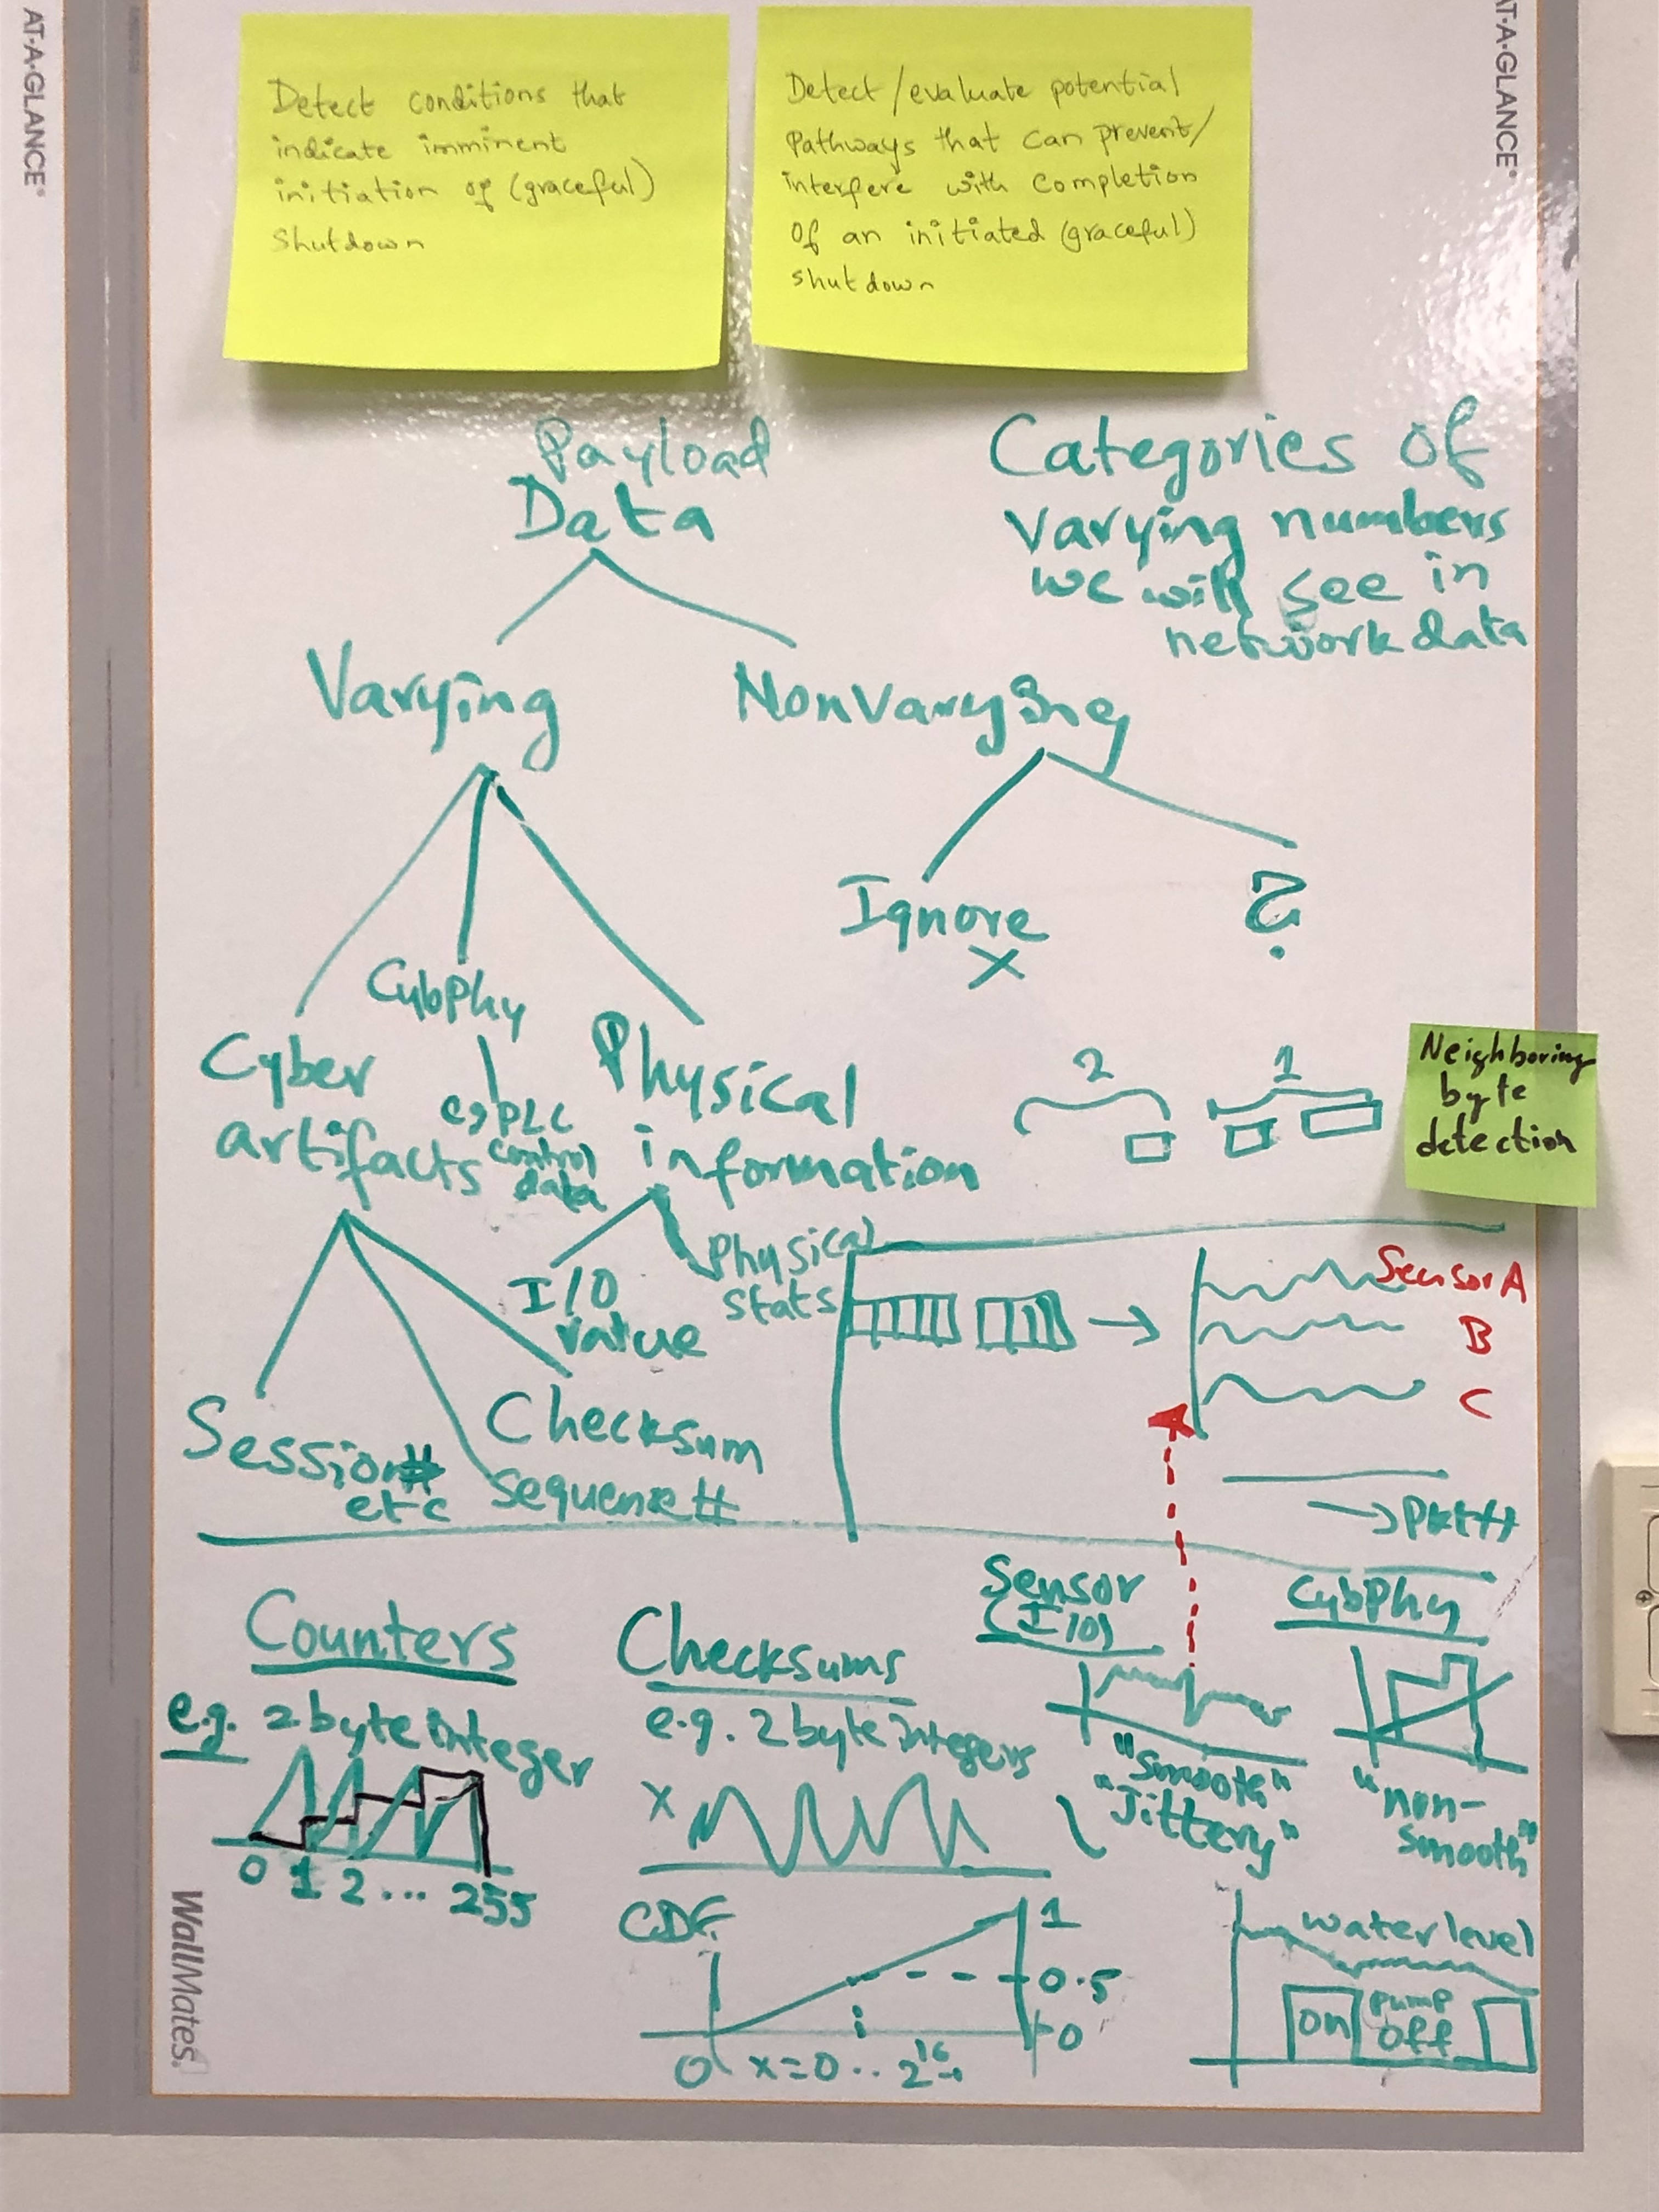 AT-A-GLANCE®
AT-A-GLANCE®
Detect conditions that
indicate imminent
initiation of (graceful)
Shutdown
Detect/evaluate potential
Pathways that can prevent/
interfere with completion
Of an initiated (graceful)
shutdown
Payload
Data
Categories of
varying numbers
we will see in
network data
Varying
NonVarying
Ignore
X
?
CybPhy
eg PLC
control
data
Cyber
artifacts
Physical
information
2
1
Neighboring
byte
detection
I/O
value
Physical
stats
Sensor A
B
C
Session#
etc
Checksum
Sequence#
→ Pkt#
Counters
e.g. 2 byte integer
0 1 2 ... 255
Checksums
e.g. 2 byte integers
X
CDF
1
0.5
0
0 x=0 .. 2^16-1
Sensor
(I/O)
"Smooth"
"Jittery"
CybPhy
"non-
smooth"
water level
on
pump
off
WallMates.